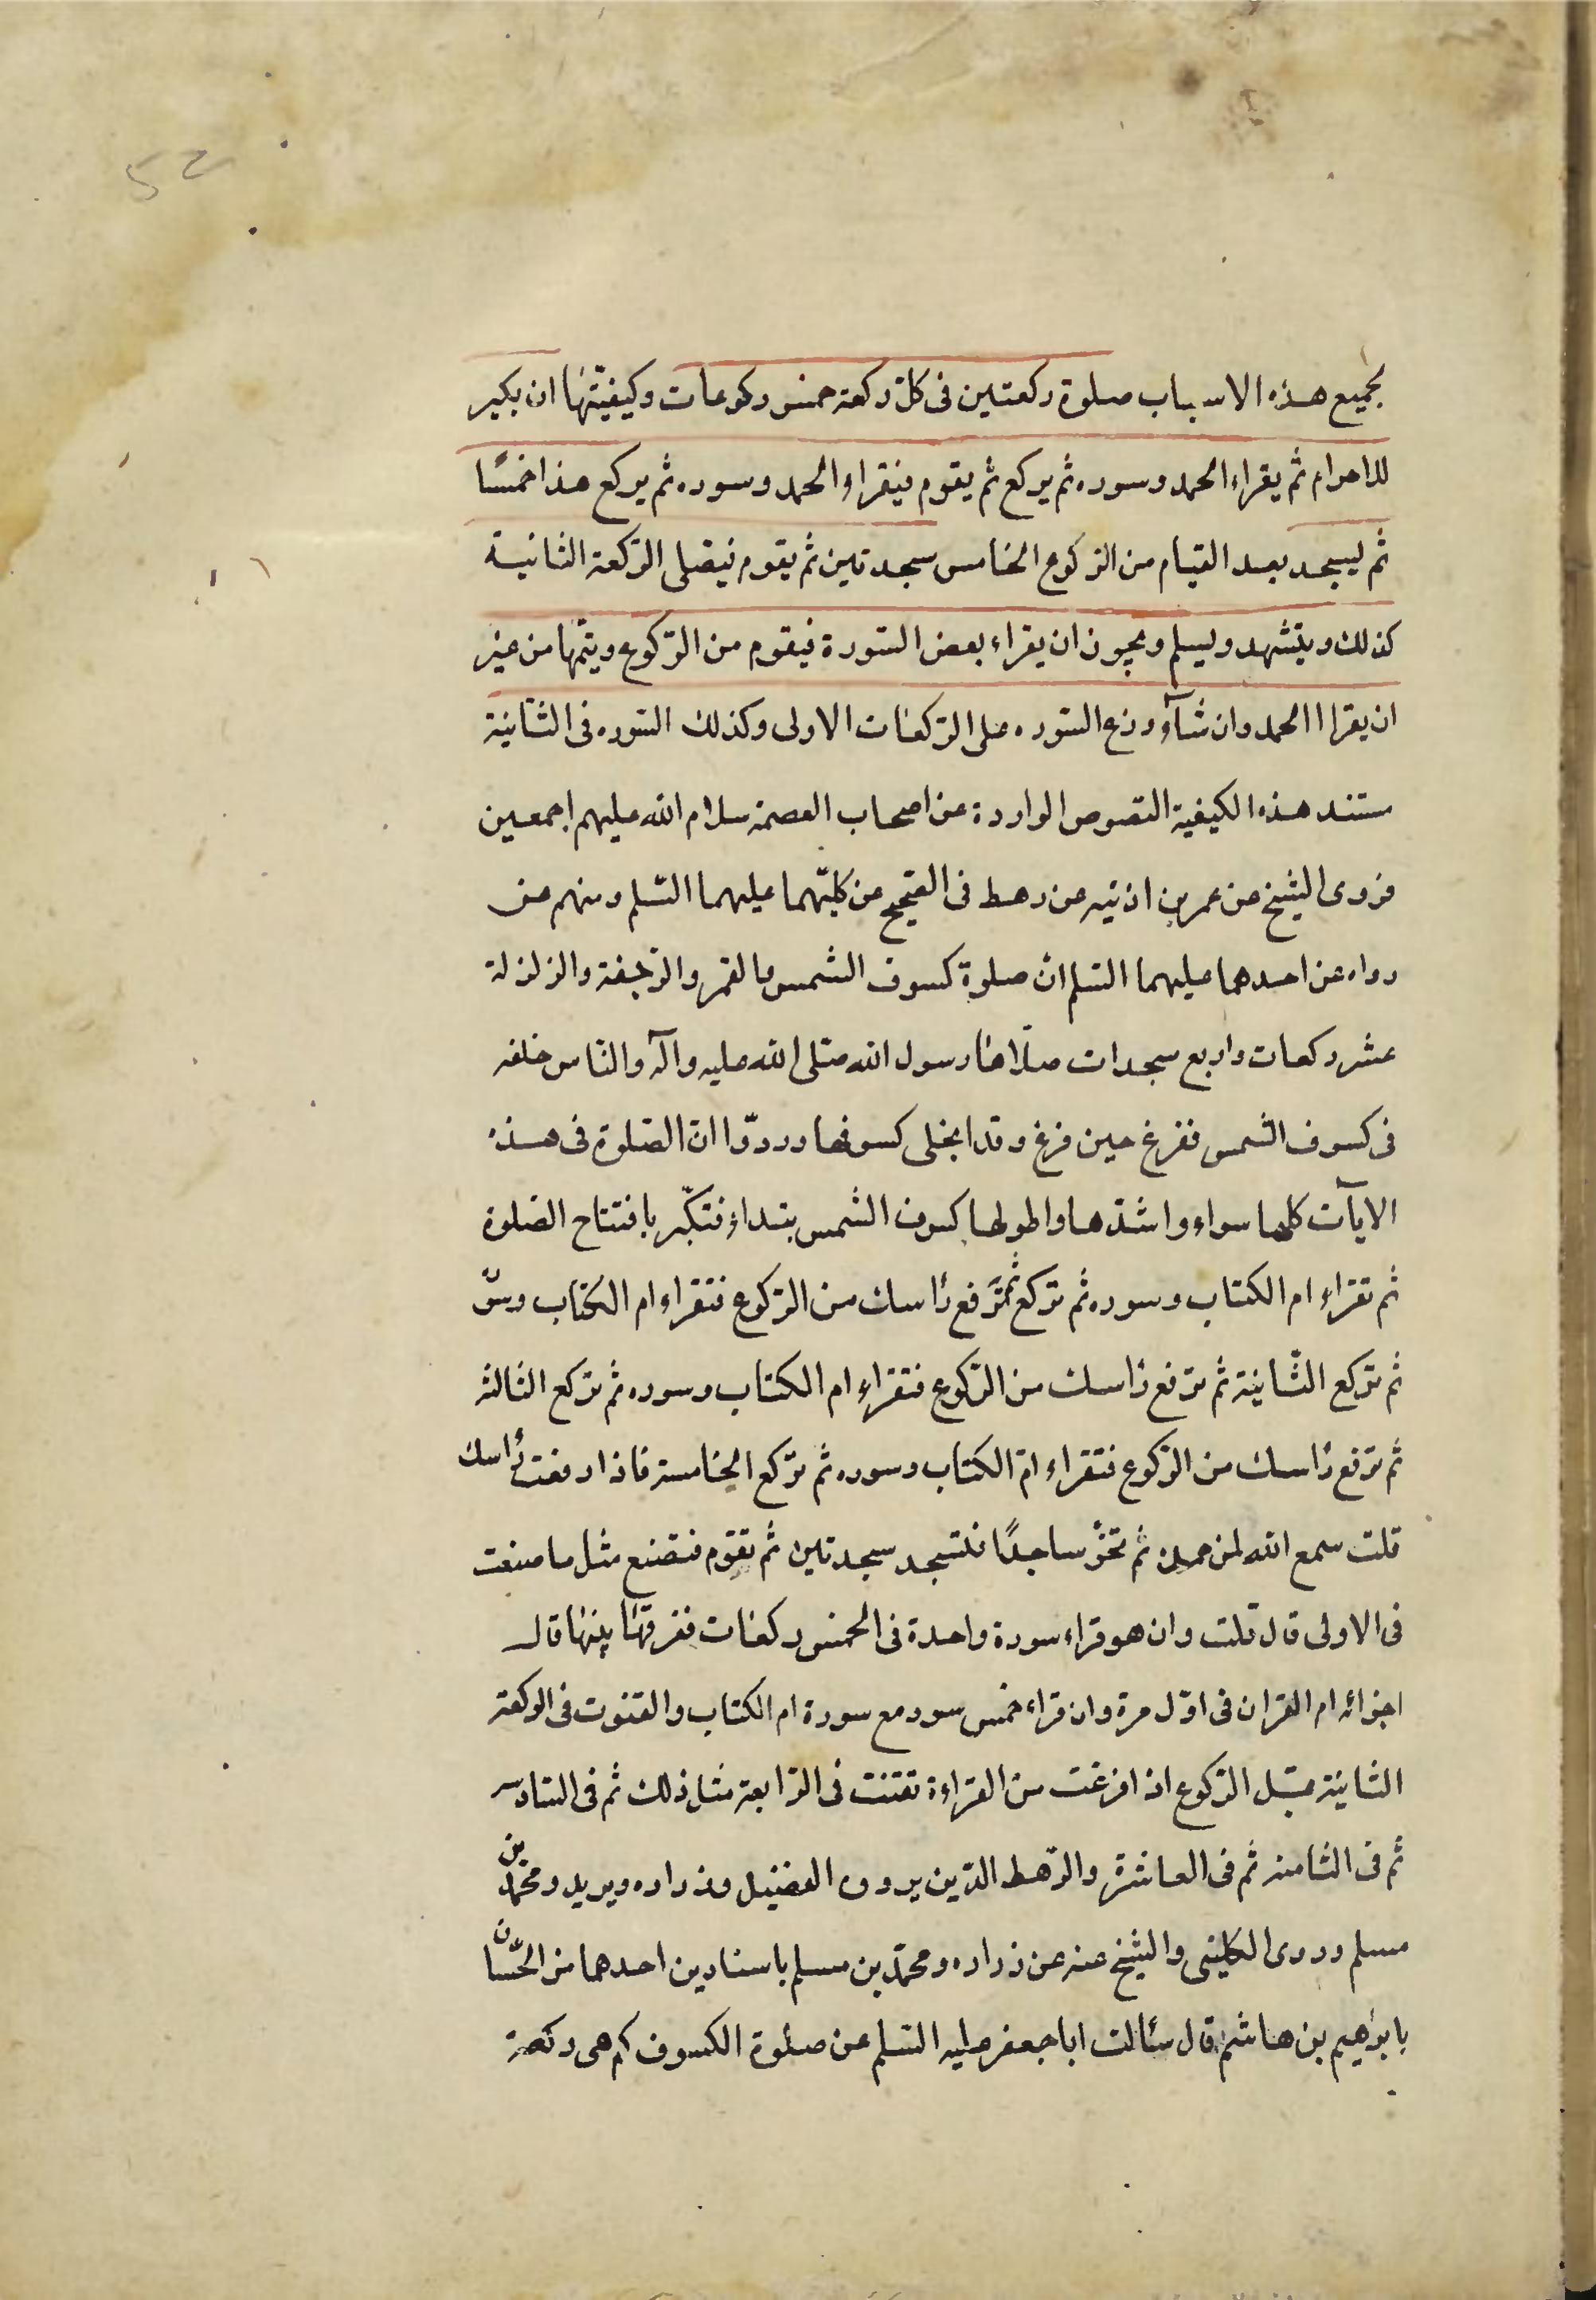 52
لجميع هذه الاسباب صلوة ركعتين فى كل ركعة خمس ركوعات وكيفيّتها ان يكبر
للاحرام ثم يقراء الحمد وسوره ثم يركع ثم يقوم فيقراء الحمد وسوره ثم يركع هذا خمسًا
ثم ليسجد بعد القيام من الركوع الخامس سجدتين ثم يقوم فيصلى الركعة الثانية
كذلك ويتشهد ويسلم ويجوز ان يقراء بعض السّورة فيقوم من الرّكوع ويتمّها من غير
ان يقرا الحمد وان شآء وزع السّوره على الرّكعات الاولى وكذلك السّوره فى الثّانية
مستند هذه الكيفية النّصوص الواردة عن اصحاب العصمة سلام الله عليهم اجمعين
فروى الشيخ عن عمر بن اذنيه عن رهط فى الصّحيح عن كليّهما عليهما السّلم ومنهم من
رواه عن احدهما عليهما السّلم انّ صلوة كسوف الشمس والقمر والرّجفة والزلزلة
عشر ركعات واربع سجدات صلّاها رسول الله صلّى الله عليه وآله والنّاس خلفه
فى كسوف الشمس ففرغ حين فرغ وقد انجلى كسوفها ورووّا انّ الصّلوة فى هذه
الايآت كلها سواء واشدّها واطولها كسوف الشّمس بتداء فتكبّر بافتتاح الصّلوة
ثم تقراء ام الكتاب وسوره ثم تركع ثم ترفع رأسك من الرّكوع فتقراء ام الكتاب وسوّ
ثم تركع الثّانية ثم ترفع رأسك من الرّكوع فتقراء ام الكتاب وسوره ثم تركع الثالثه
ثم ترفع رأسك من الرّكوع فتقراء امّ الكتاب وسوره ثم تركع الخامسة فاذا رفعت رأسك
قلت سمع الله لمن حمده ثم تخرّ ساجدًا فتسجد سجدتين ثم تقوم فتصنع مثل ما صنعت
فى الاولى قال قلت وان هو قراء سورة واحدة فى الخمس ركعات ففرقها بينها قال
اجزائه ام القران فى اوّل مرة وان قراء خمس سور مع سورة ام الكتاب والقنوت فى الركعة
الثانية قبل الرّكوع اذا فرغت من القراءة تقنت فى الرّابعة مثل ذلك ثم فى السّادس
ثم فى الثامنه ثم فى العاشرة والرّهط الذّين يروون الفضيل وزراره وبريد ومحمّد بن
مسلم وروى الكلينى والشيخ عنه عن زراره ومحمّد بن مسلم باسنادين احدهما من الحّسان
بابرٰهيم بن هاشم قال سئالت ابا جعفر عليه السّلم عن صلوة الكسوف كم هى ركعة